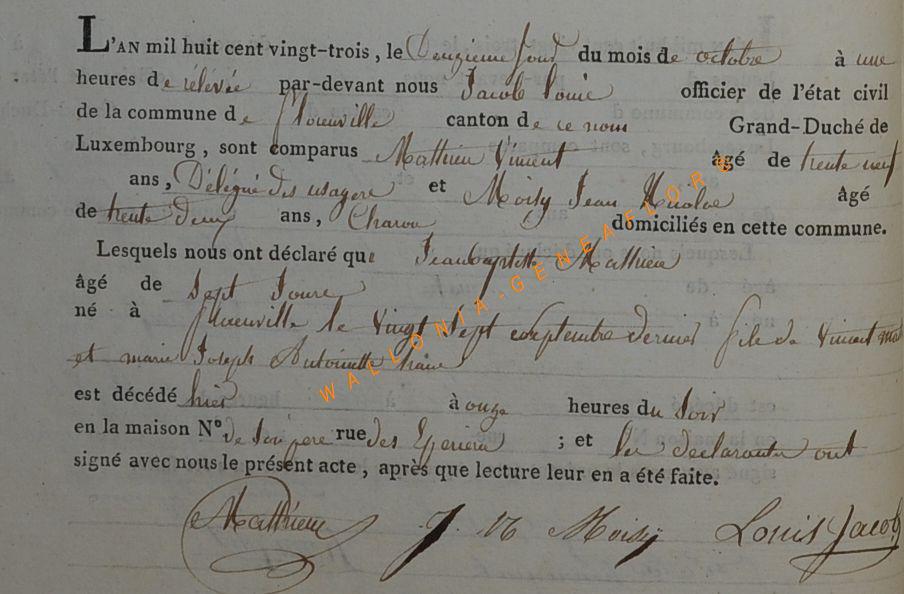 L'AN mil huit cent vingt-trois, le Deuzieme jour du mois de octobre à une
heures de rélévée par-devant nous Jacob Louis officier de l'état civil
de la commune de canton de ce nom Grand-Duché de
Luxembourg, sont comparus Matthieu Vincent âgé de trente neuf
ans, Délégué des usagers et Moisy Jean Nicolas âgé
de trente deux ans, Charon domiciliés en cette commune.
Lesquels nous ont déclaré que Jeanbaptiste Matthieu
âgé de sept Jours
né à le vingt sept septembre dernier fils de Vincent
et marie Joseph Antoinette
est décédé hier à onze heures du Soir
en la maison N° de Son pere rue des ; et les declarants ont
signé avec nous le présent acte, après que lecture leur en a été faite.
Matthieu J. N. Moisy Louis Jacob
WALLONIA-GENEAFLORE